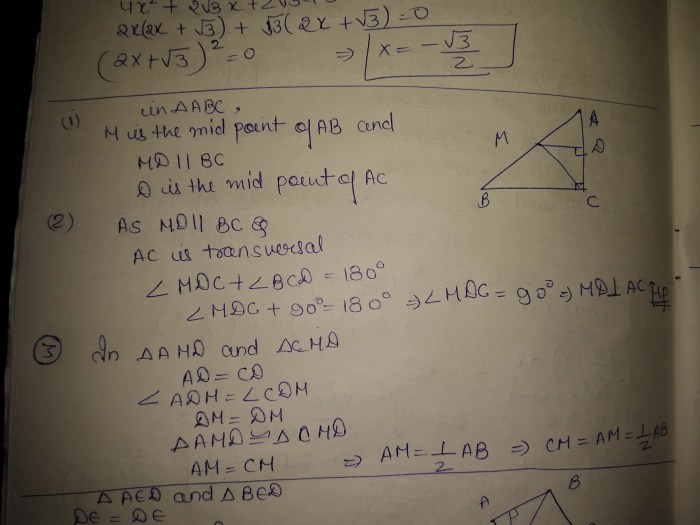 4x² + 2√3x + 2√3
2x(2x + √3) + √3(2x + √3) = 0
(2x + √3)² = 0 ⇒ x = -√3/2
(1) in △ABC,
M is the mid point of AB and
MD || BC
D is the mid point of AC
A
M
D
B
C
(2) AS MD || BC &
AC is transversal
∠MDC + ∠BCD = 180°
∠MDC + 90° = 180° ⇒ ∠MDC = 90° ⇒ MD ⊥ AC HP
(3) In △AMD and △CMD
AD = CD
∠ADM = ∠CDM
DM = DM
△AMD ≅ △CMD
AM = CM ⇒ AM = 1/2 AB ⇒ CM = AM = 1/2 AB
△AED and △BED
DE = DE
A
P
B